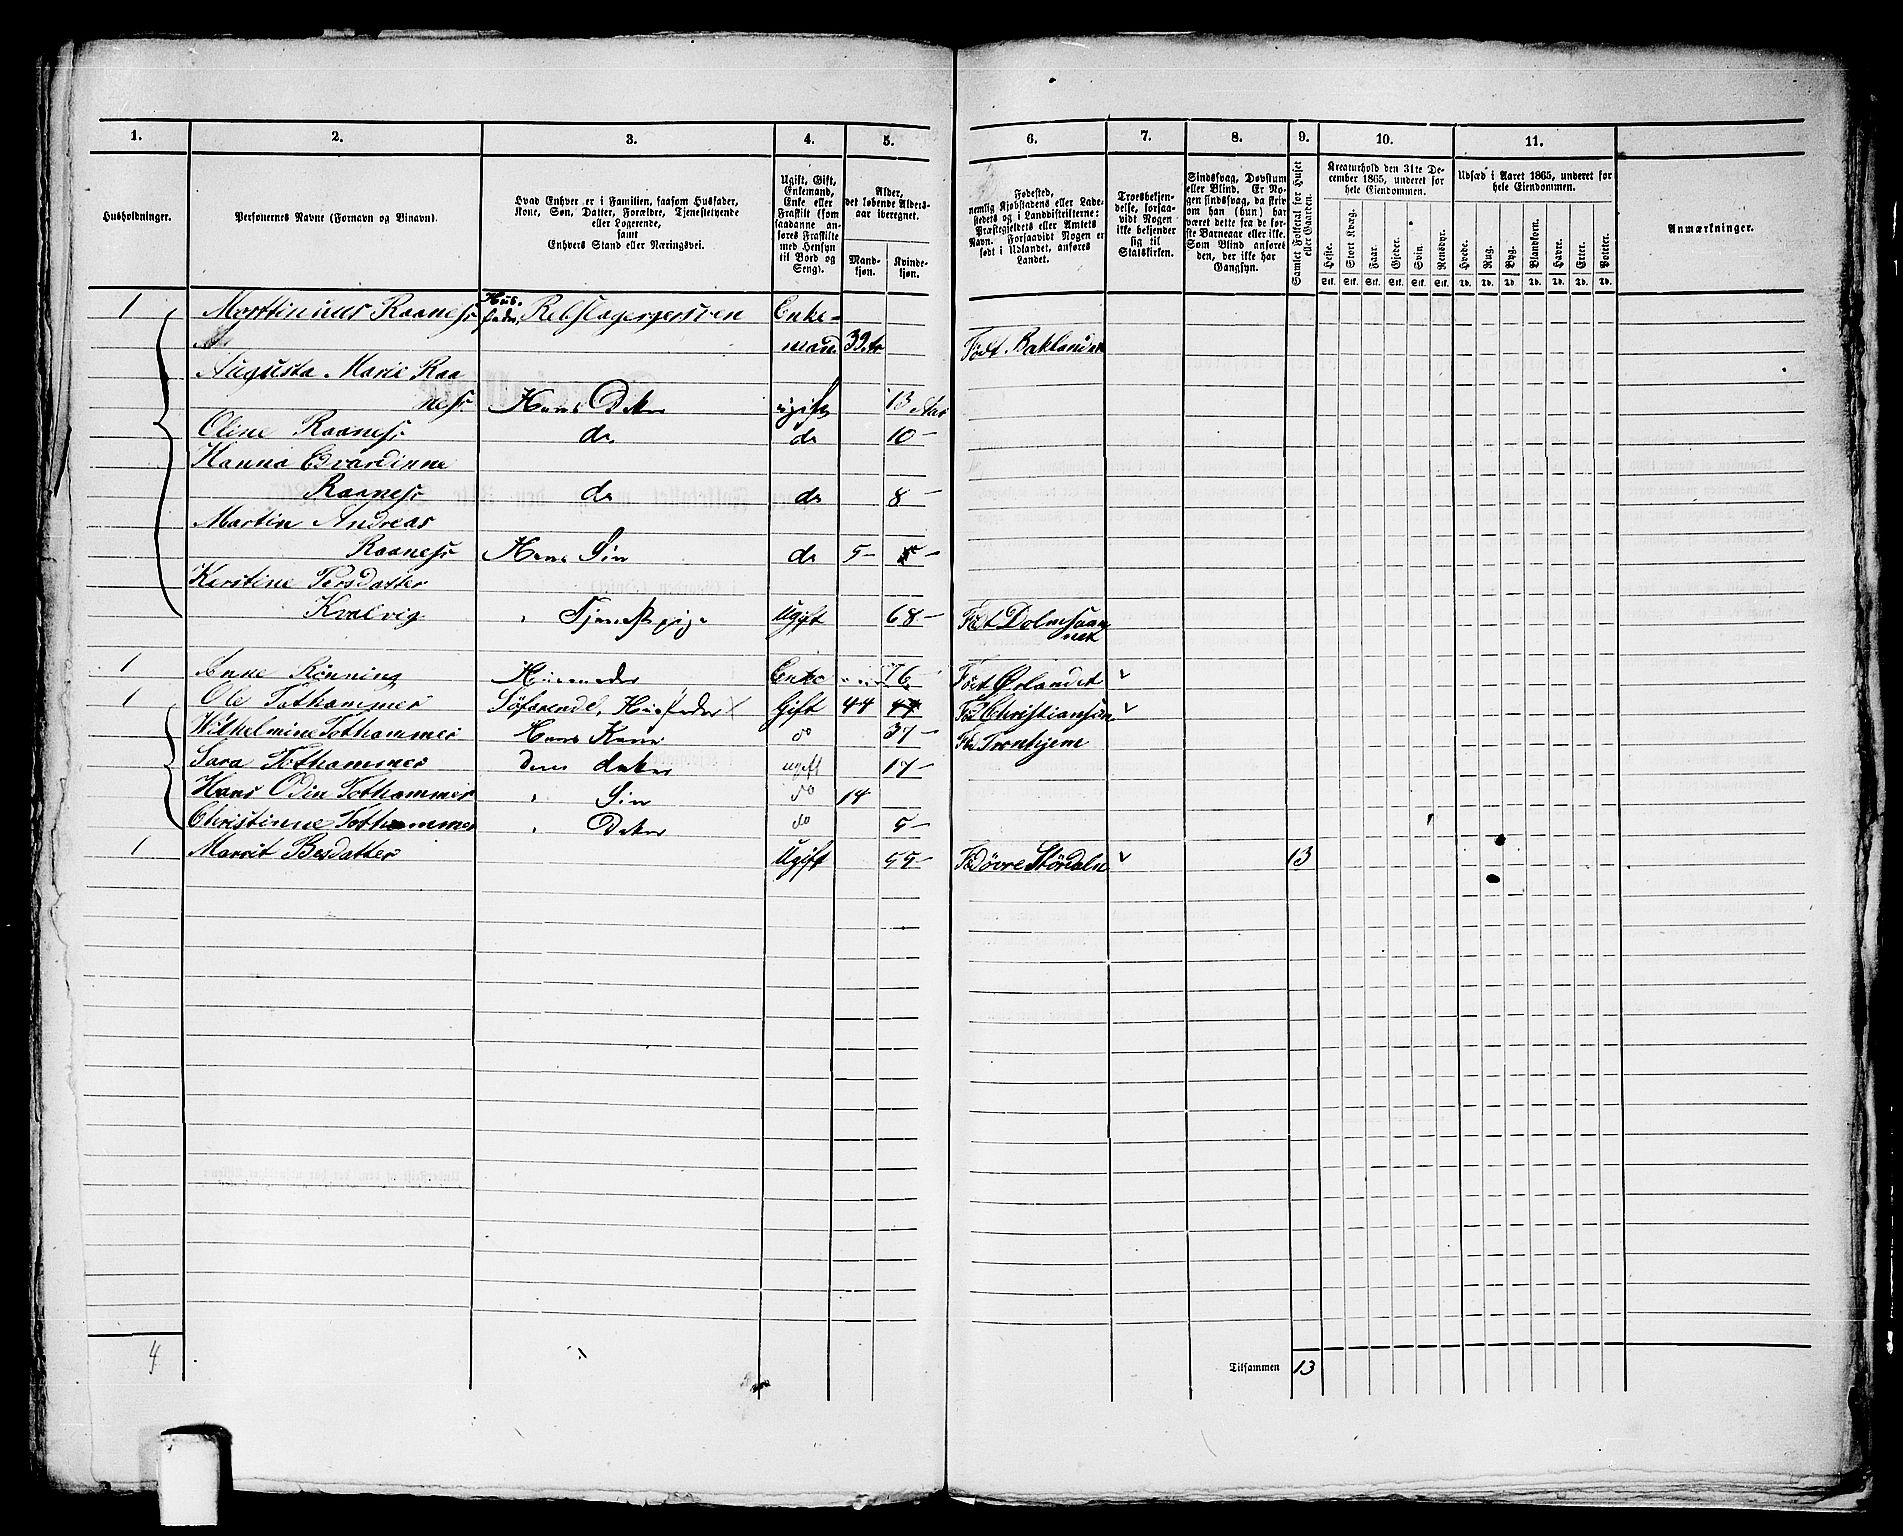 1. 2. 3. 4. 5. 6. 7. 8. 9. 10. 11.
Husholdninger.
Personernes Navne (Fornavn og Binavn).
Hvad Enhver er i Familien, saasom Husfader,
Kone, Søn, Datter, Forældre, Tjenestetyende
eller Logerende,
samt
Enhvers Stand eller Næringsvei.
Ugift, Gift,
Enkemand,
Enke eller
Fraskilt (som
saadanne an-
føres Fraskilte
med Hensyn
til Bord og
Seng).
Alder,
det løbende Alders-
aar iberegnet.
Mand-
kjøn.
Kvinde-
kjøn.
Fødested,
nemlig Kjøbstadens eller Lade-
stedets og i Landdistrikterne:
Præstegjeldets eller Amtets
Navn. Forsaavidt Nogen er
født i Udlandet, anføres
Landet.
Troesbekjen-
delse, forsaa-
vidt Nogen
ikke bekjender
sig til
Statskirken.
Sindssvag, Døvstum
eller Blind. Er No-
gen sindssvag, da skriv
om han (hun) har
været dette fra de før-
ste Barneaar eller ikke.
Som Blind anføres
den, der ikke har
Gangsyn.
Samlet Folketal for Huset
eller Gaarden.
Kreaturhold den 31te De-
cember 1865, underet for
hele Eiendommen.
Heste. Stort Kvæg. Faar. Gjeder. Svin. Rensdyr.
Stk. Stk. Stk. Stk. Stk. Stk.
Udsæd i Aaret 1865, underet for
hele Eiendommen.
Hvede. Rug. Byg. Blandkorn. Havre. Erter. Poteter.
Td. Td. Td. Td. Td. Td. Td.
Anmærkninger.
1 Raaness Hus- Enke-
man 39 Født Baklandet
Augusta Marie Raa
ness Hans Dater ugift 13 Aar
Oline Raaness do do 10 -
Hanna
Raaness do do 8 -
Martin Andreas
Raaness Hans Søn do 5 -
Kerstine Persdatter
Kvalvig Ugift 68 -
1 Anne Rønning Enke 76 Født Ørlandet
1 Ole Tothammer Søfarende, Husfader Gift 44
Wilhelmine Tothammer Hans Kone do 37 -
Sara Tothammer Deres dater ugift 17 -
Hans Odin Tothammer Søn do 14
Christinne Tothammer Dater do 5 -
1 Marrit Ugift 55 - 13
4
Tilsammen 13